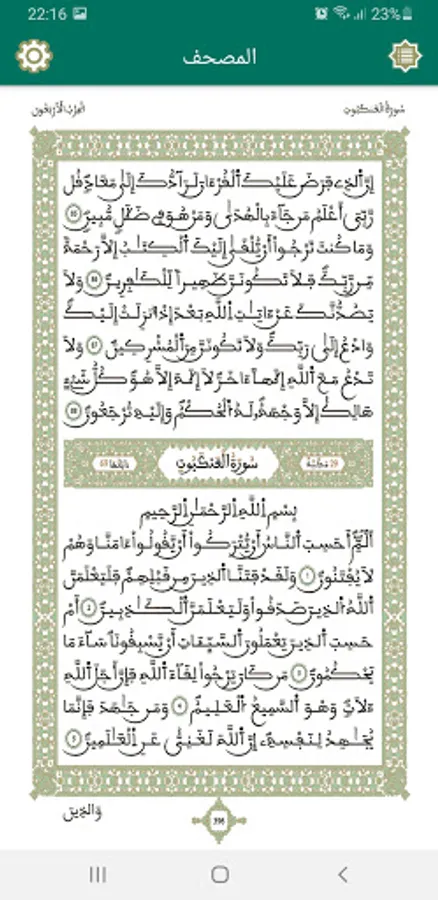 22:16 23%
المصحف
سُورَةُ الْعَنكَبُوتِ الْحِزْبُ الْأَرْبَعُونَ
إِنَّ اَ۬لذِے فَرَضَ عَلَيْكَ اَ۬لْقُرْءَانَ لَرَآدُّكَ إِلَىٰ مَعَادٖۖ قُل
رَّبِّيَ أَعْلَمُ مَن جَآءَ بِالْهُد۪ىٰ وَمَنْ هُوَ فِے ضَلَٰلٖ مُّبِينٖ 85
وَمَا كُنتَ تَرْجُوٓاْ أَنْ يُّلْق۪ىٰٓ إِلَيْكَ اَ۬لْكِتَٰبُ إِلَّا رَحْمَةٗ
مِّن رَّبِّكَۖ فَلَا تَكُونَنَّ ظَهِيراٗ لِّلْكٰ۪فِرِينَ 86 وَلَا
يَصُدُّنَّكَ عَنَ اٰيَٰتِ اِ۬للَّهِ بَعْدَ إِذُ ا۟نزِلَتِ اِلَيْكَ
وَادْعُ إِلَىٰ رَبِّكَۖ وَلَا تَكُونَنَّ مِنَ اَ۬لْمُشْرِكِينَ 87 وَلَا
تَدْعُ مَعَ اَ۬للَّهِ إِلَٰهاً اٰخَرَۖ لَآ إِلَٰهَ إِلَّا هُوَۖ كُلُّ شَےْءٍ
هَالِكٌ إِلَّا وَجْهَهُۥۖ لَهُ اُ۬لْحُكْمُ وَإِلَيْهِ تُرْجَعُونَ 88
29 مَكِّيَّة سُورَةُ الْعَنكَبُوتِ ءَايَاتُهَا 69
بِسْمِ اِ۬للَّهِ اِ۬لرَّحْمَٰنِ اِ۬لرَّحِيمِ
أَلَٓمِّٓۖ أَحَسِبَ اَ۬لنَّاسُ أَنْ يُّتْرَكُوٓاْ أَنْ يَّقُولُوٓاْ ءَامَنَّا وَهُمْ
لَا يُفْتَنُونَ 1 وَلَقَدْ فَتَنَّا اَ۬لذِينَ مِن قَبْلِهِمْۖ فَلَيَعْلَمَنَّ
اَ۬للَّهُ اُ۬لذِينَ صَدَقُواْ وَلَيَعْلَمَنَّ اَ۬لْكَٰذِبِينَ 2 أَمْ
حَسِبَ اَ۬لذِينَ يَعْمَلُونَ اَ۬لسَّيِّـَٔاتِ أَنْ يَّسْبِقُونَاۖ سَآءَ مَا
يَحْكُمُونَ 3 مَن كَانَ يَرْجُواْ لِقَآءَ اَ۬للَّهِ فَإِنَّ أَجَلَ اَ۬للَّهِ
ءَلَاتٖۖ وَهُوَ اَ۬لسَّمِيعُ اُ۬لْعَلِيمُ 4 وَمَن جَٰهَدَ فَإِنَّمَا
يُجَٰهِدُ لِنَفْسِهِۦٓۖ إِنَّ اَ۬للَّهَ لَغَنِيٌّ عَنِ اِ۬لْعَٰلَمِينَ 5
396
وَالذِينَ